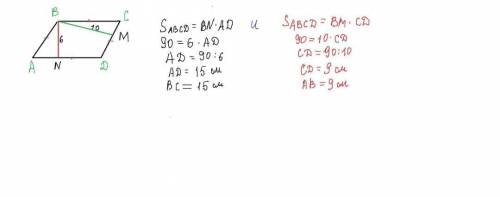 B
C
10
6
M
A
N
D
S ABCD = BN·AD
90 = 6 · AD
AD = 90 : 6
AD = 15 см
BC = 15 см
и
S ABCD = BM · CD
90 = 10 · CD
CD = 90 : 10
CD = 9 см
AB = 9 см